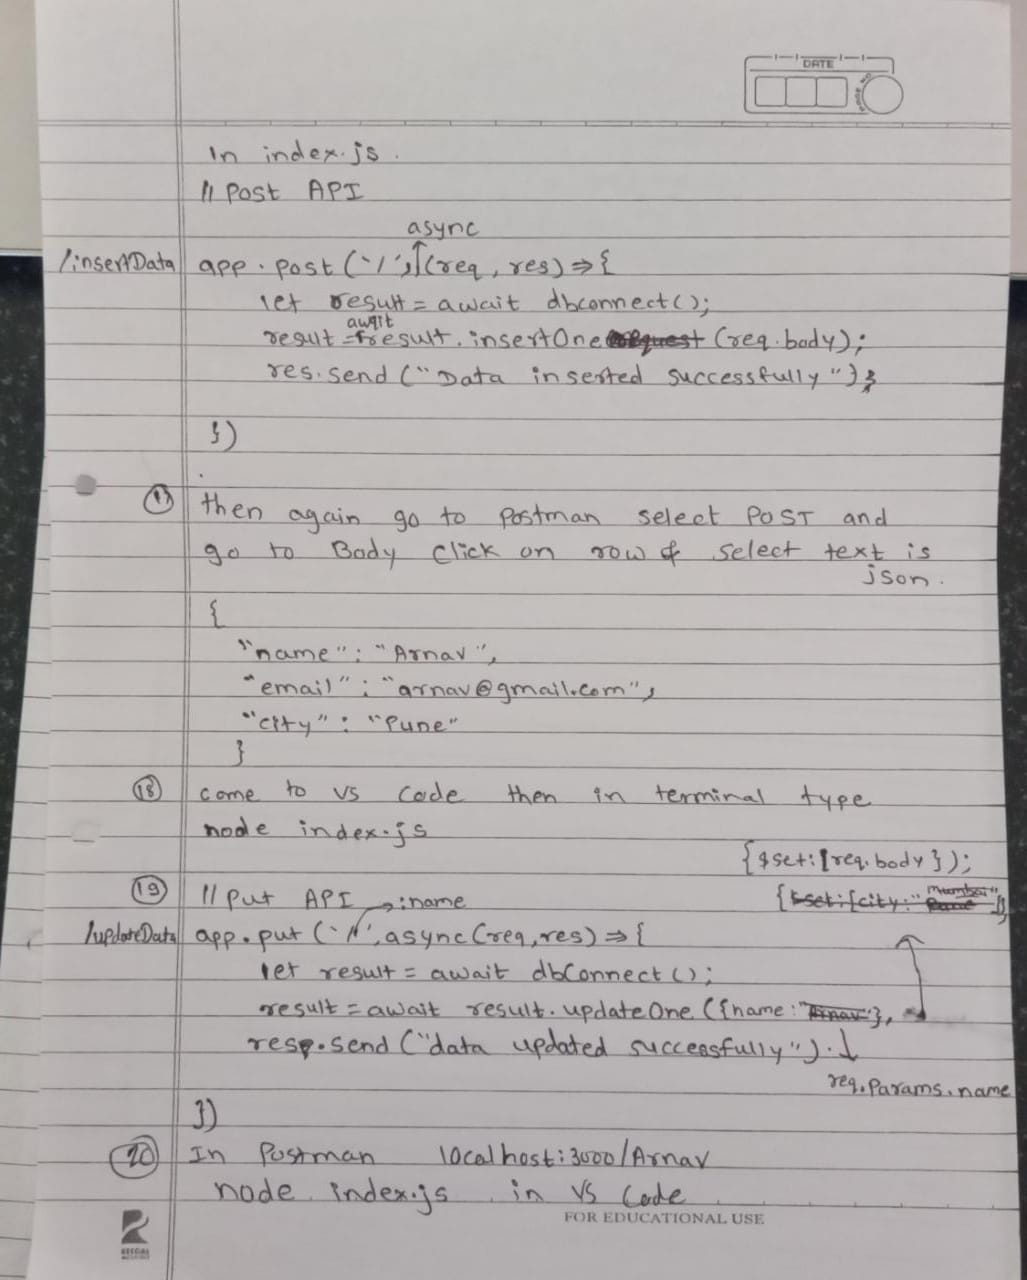 DATE
PAGE NO
In index.js.
// Post API
async
/insertData app.post('/',(req, res)=>{
let result = await dbconnect();
await
result = result.insertOne (req.body);
res.send ("Data inserted successfully");
})
17 then again go to Postman select POST and
go to Body click on row & select text is
json.
{
"name": "Arnav",
"email": "arnav@gmail.com",
"city": "Pune"
}
18 come to VS Code then in terminal type
node index.js
{$set:[req.body});
19 // Put API → :name
{$set:{city:"Mumbai"
/updateData app.put('/', async(req,res)=>{
let result = await dbConnect();
result = await result.updateOne ({name: "Arnav"},
resp.send ("data updated successfully").
req.params.name
})
20 In Postman localhost:3000/Arnav
node index.js in VS Code
FOR EDUCATIONAL USE